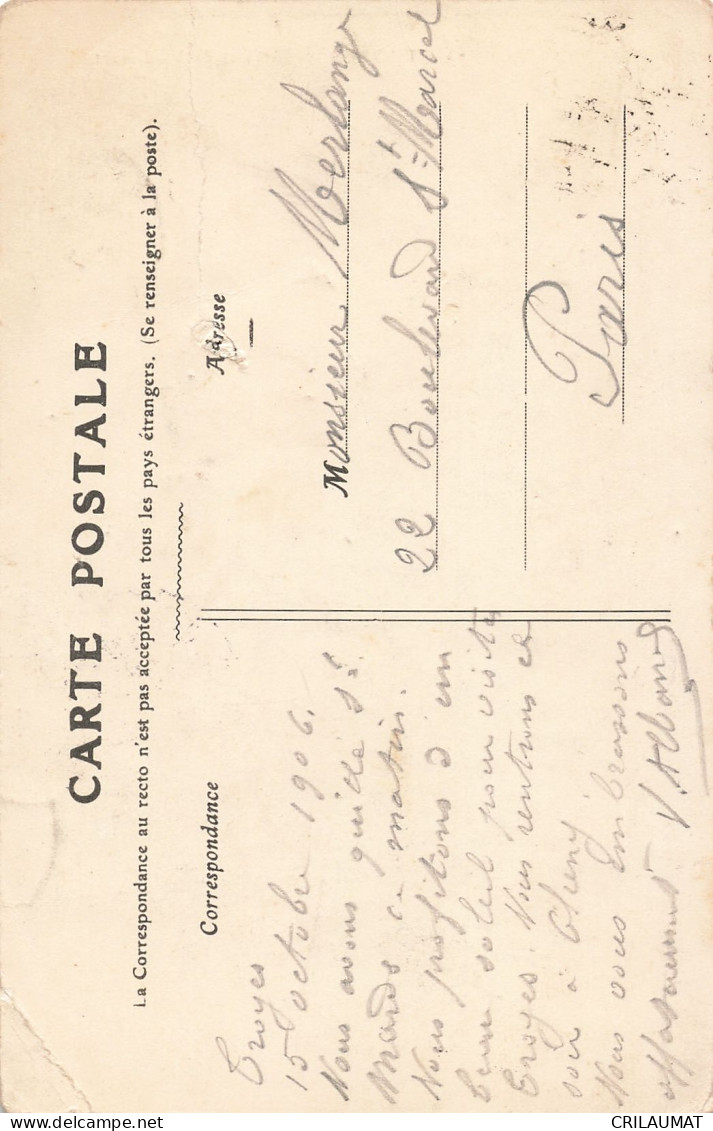 CARTE POSTALE
La Correspondance au recto n'est pas acceptée par tous les pays étrangers. (Se renseigner à la poste).
Correspondance
Troyes
15 octobre 1906.
Nous avons quitté St
Mards ce matin.
Nous profitons d'un
beau soleil pour visiter
Troyes. Nous rentrons ce
soir à
Nous vous embrassons
affectueusement
Adresse
Monsieur Merlange
22 Boulevard St Marcel
Paris
CRILAUMAT